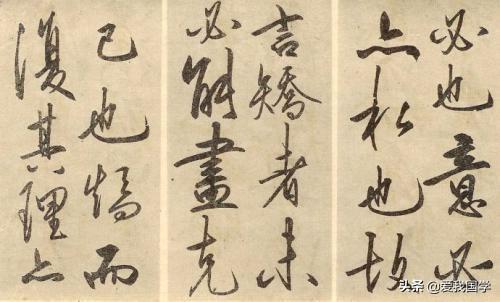 必也意必
亦私也故
言矯者未
必能盡克
己也矯而
復其理亦
头条 @爱我国学